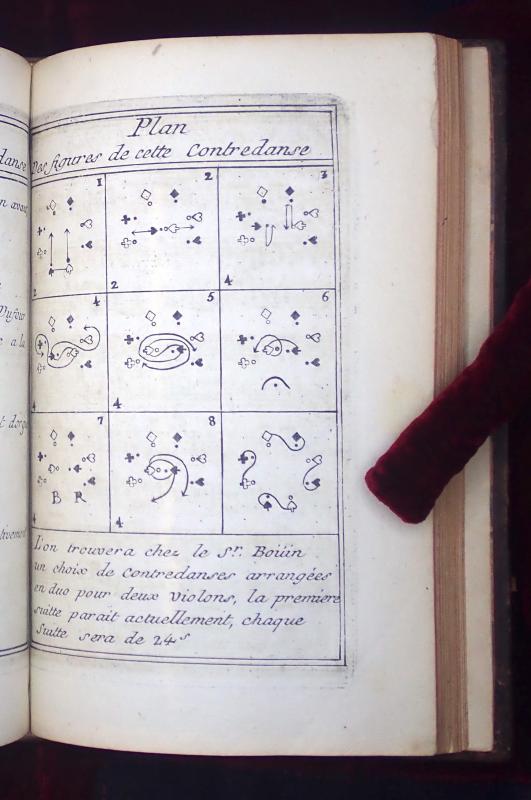 Plan
Des figures de cette Contredanse
1 2 3
2 2 4
4 5 6
4 4
7 8
B R
4 4
L'on trouvera chez le Sr. Boüin
un choix de Contredanses arrangées
en duo pour deux violons, la premiere
suitte parait actuellement, chaque
Suitte sera de 24s
danse
n avant
e a la